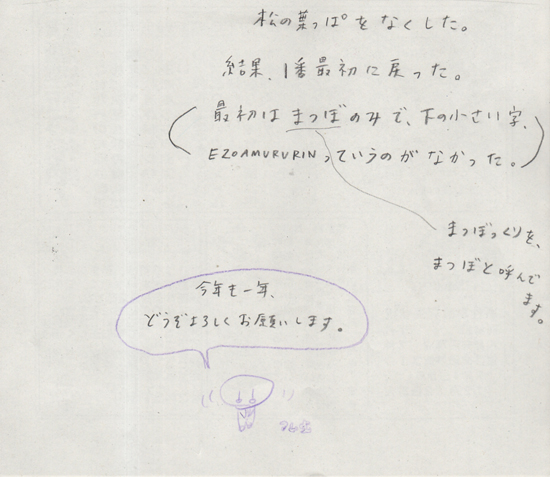 松の葉っぱをなくした。
結果、1番最初に戻った。
(最初はまつぼのみで、下の小さい字、
EZOAMURURINっていうのがなかった。)
まつぼっくりを、
まつぼと呼んで
ます。
今年も一年、
どうぞよろしくお願いします。